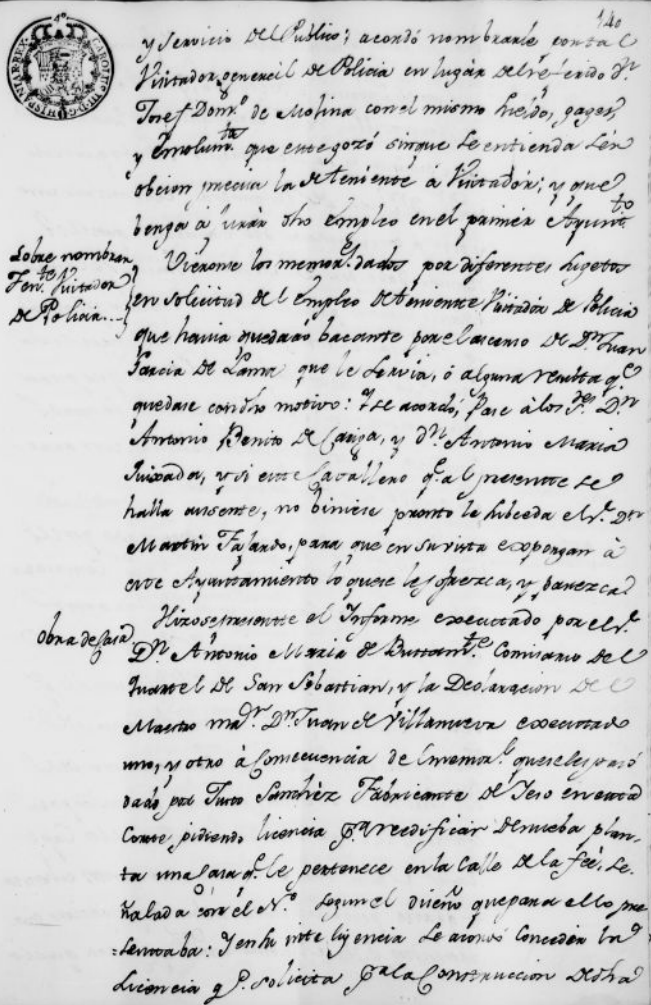 140
CAROLUS III D G HISPANIAR REX
y servicio del Publico; acordó nombrarle por tal
Visitador general de Policia en lugar del referido Dn.
Josef Domo. de Molina con el mismo sueldo, gages,
y emolumtos. que este gozó sin que se entienda ser
obcion precisa la de teniente à Visitador; y que
benga à jurar dho empleo en el primer Ayuntto.
Sobre nombrar
Tente. Visitador
de Policia...
Vieronse los memorles. dados por diferentes sugetos
en solicitud del empleo de teniente Visitador de Policia
que havia quedado bacante por el ascenso de Dn. Juan
Garcia de Lama que le servia, ó alguna resulta qe.
quedase con dho motivo: Y se acordó, Pase à los Sres. Dn.
Antonio Benito de Cariga, y Dn. Antonio Maria
Quixada, y si este Cavallero qe. al presente se
halla ausente, no biniese pronto le subceda el Sr. Dn.
Martin Faxardo, para que en su vista expongan à
este Ayuntamiento lo que se les ofrezca, y parezca.
Obra de Casa
Hizose presente el Informe executado por el Sr.
Dn. Antonio Maria de Bustamte. Comisario del
Quartel de San Sebastian, y la Declaracion del
Maestro mor. Dn. Juan de Villanueva executado
uno, y otro à Consecuencia del memorl. que se les pasó
dado por Justo Sanchez Fabricante de Yeso en esta
Corte pidiendo licencia pa. reedificar de nueba plan-
ta una Casa qe. le pertenece en la Calle de la feé, se-
ñalada con el No. segun el diseño que para ello pre
=sentaba: Y en su inteligencia se acordó conceder la
Licencia q e. solicita pa. la Construccion de dha